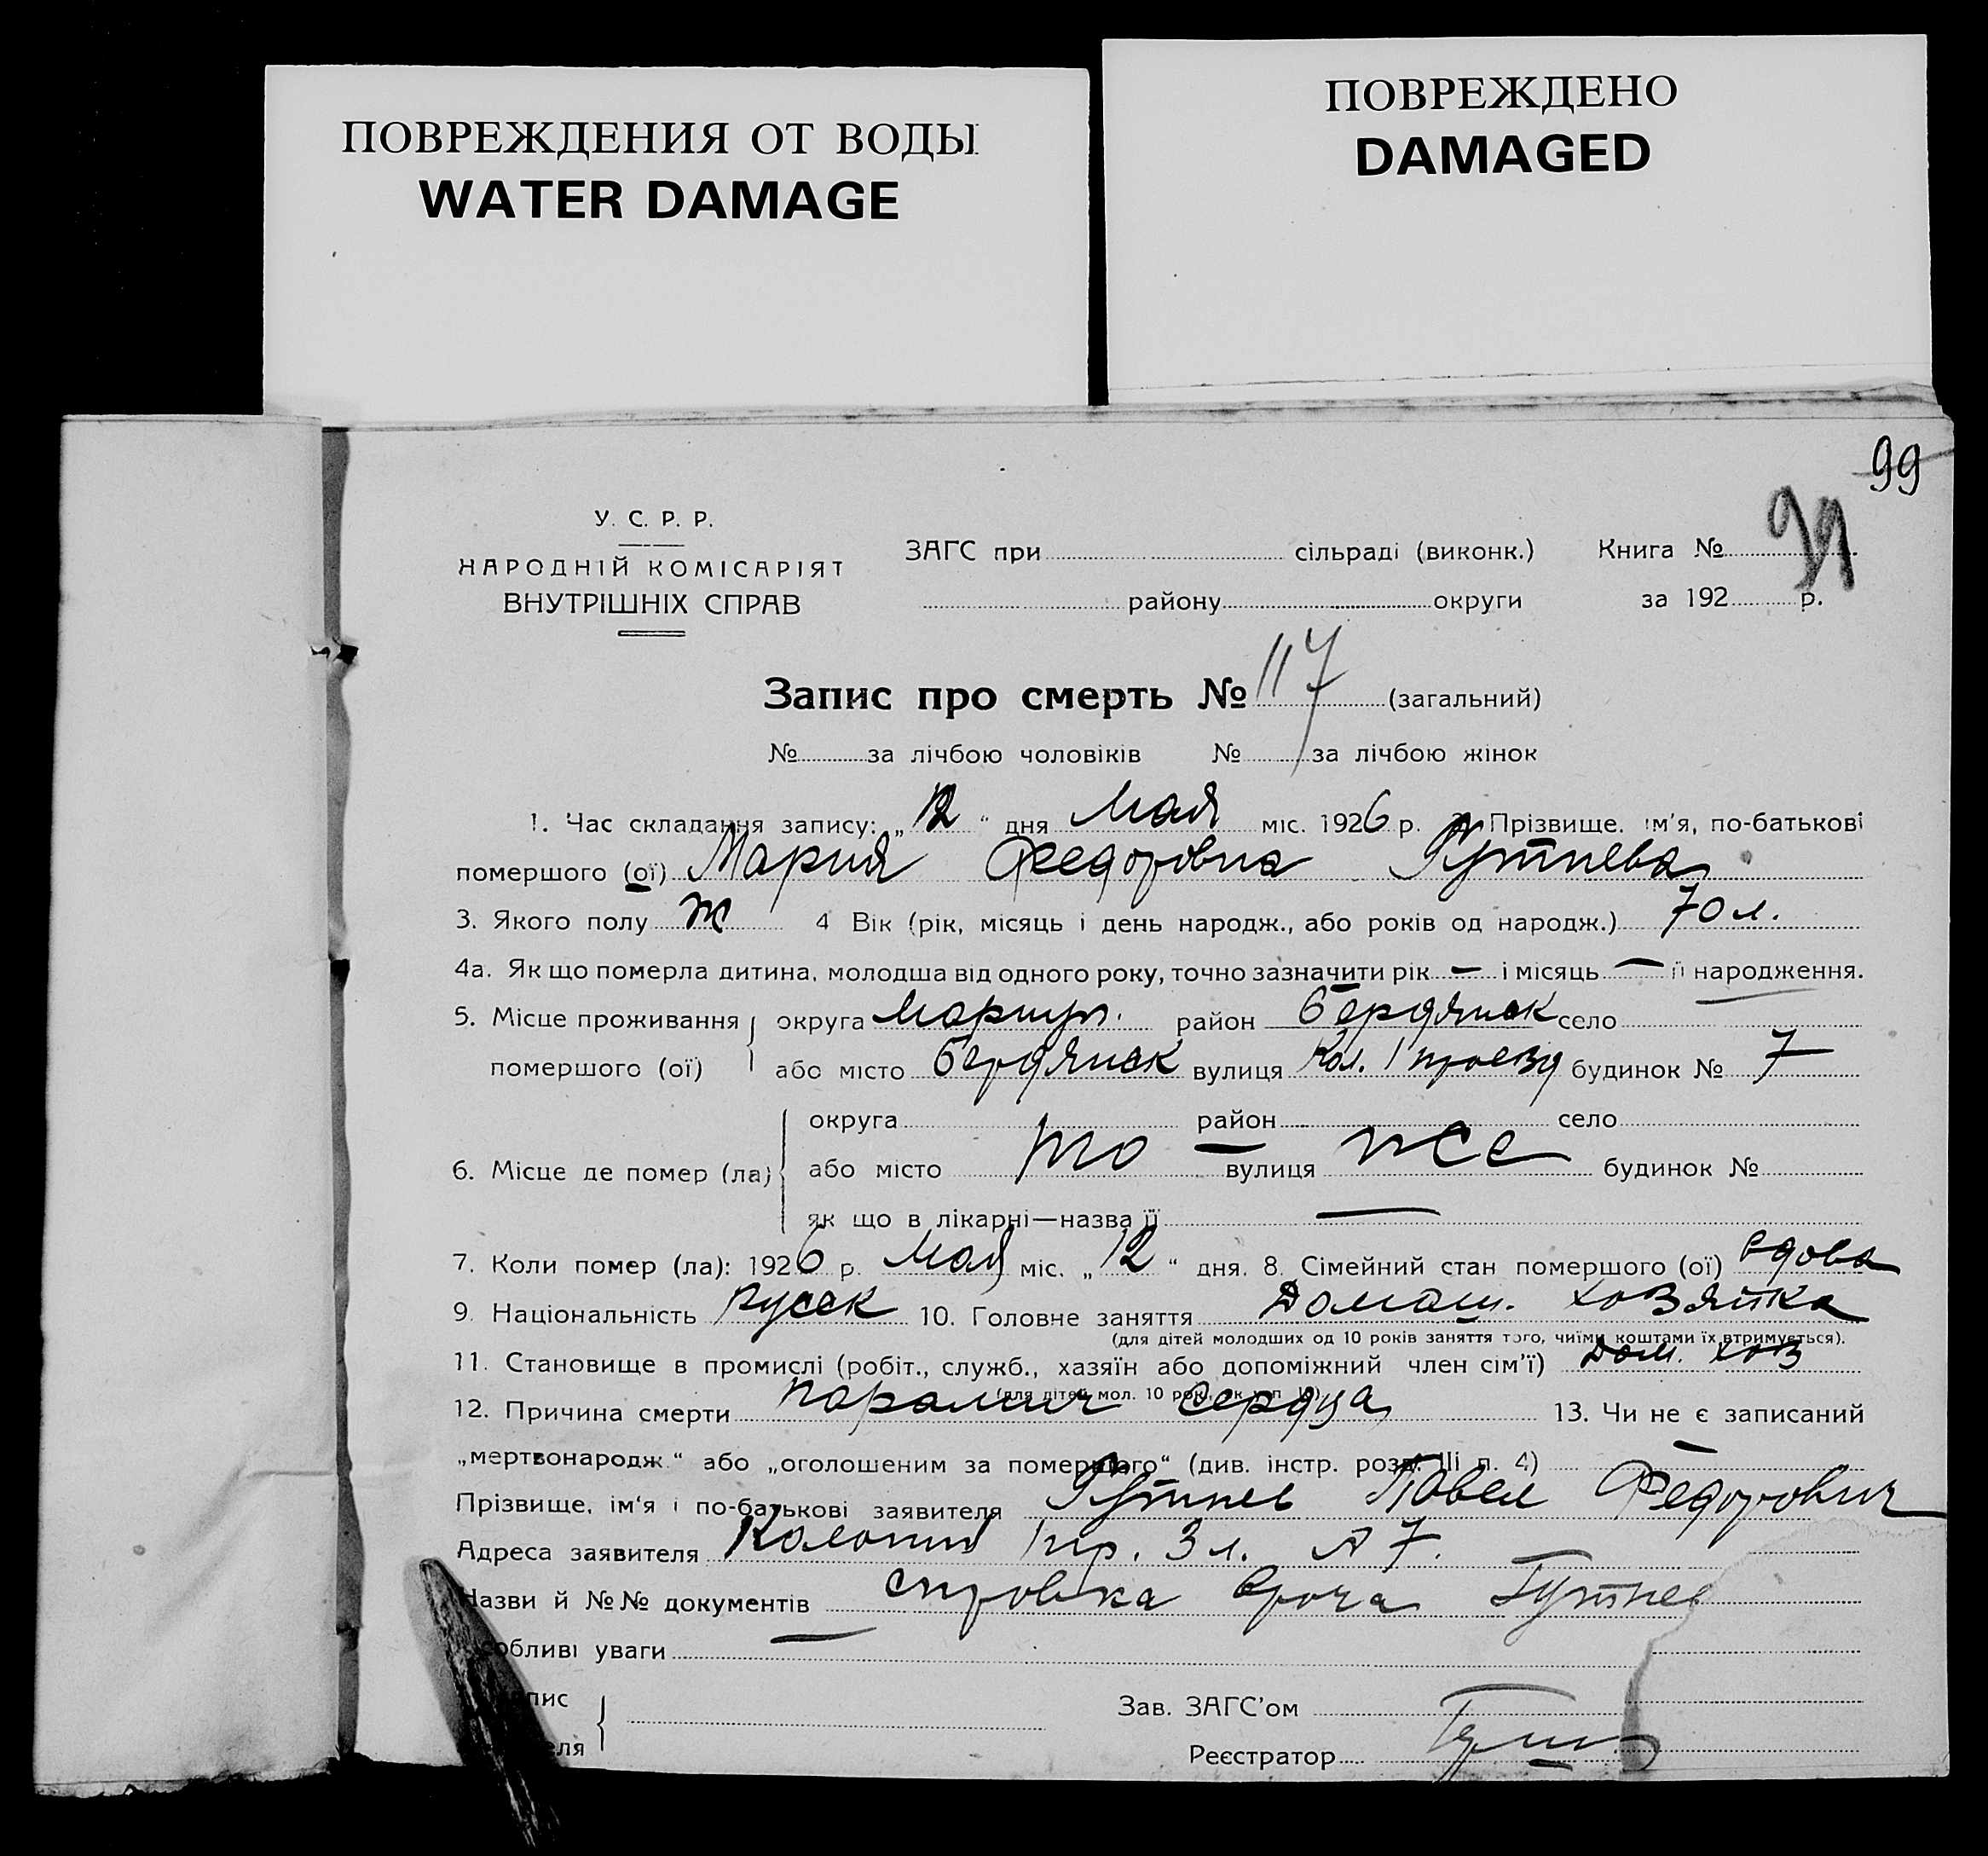 ПОВРЕЖДЕНИЯ ОТ ВОДЫ
WATER DAMAGE
ПОВРЕЖДЕНО
DAMAGED
99
У. С. Р. Р.
НАРОДНІЙ КОМІСАРІЯТ
ВНУТРІШНІХ СПРАВ
ЗАГС при сільраді (виконк.) Книга №
району округи за 192 р.
Запис про смерть № 117 (загальний)
№ за лічбою чоловіків № за лічбою жінок
1. Час складання запису: „12“ дня Мая міс. 1926 р. Прізвище, ім'я, по-батькові
помершого (ої) Мария Федоровна Гутнева
3. Якого полу ж 4 Вік (рік, місяць і день народж., або років од народж.) 70 л.
4а. Як що померла дитина, молодша від одного року, точно зазначити рік — і місяць — її народження.
5. Місце проживання округа Мариуп. район Бердянск село
помершого (ої) або місто Бердянск вулиця Кол. 1 проезд будинок № 7
округа район село
6. Місце де помер (ла) або місто то — вулиця же будинок №
як що в лікарні—назва її —
7. Коли помер (ла): 1926 р. Мая міс. „12“ дня. 8. Сімейний стан помершого (ої) вдова
9. Національність русск 10. Головне заняття Домаш. хозяйка
(для дітей молодших од 10 років заняття того, чиїми коштами їх втримується).
11. Становище в промислі (робіт., служб., хазяїн або допоміжний член сім'ї) Дом. хоз
(для дітей мол. 10 рок.
12. Причина смерти паралич сердца 13. Чи не є записаний
„мертвонародж.“ або „оголошеним за помершого“ (див. інстр. розд. ІІІ п. 4) —
Прізвище, ім'я і по-батькові заявителя Гутнев Павел Федорович
Адреса заявителя Колония 1 пр. 3 л. № 7.
Назви й №№ документів справка врача Гутнев
обливі уваги —
пис
еля
Зав. ЗАГС'ом
Реєстратор